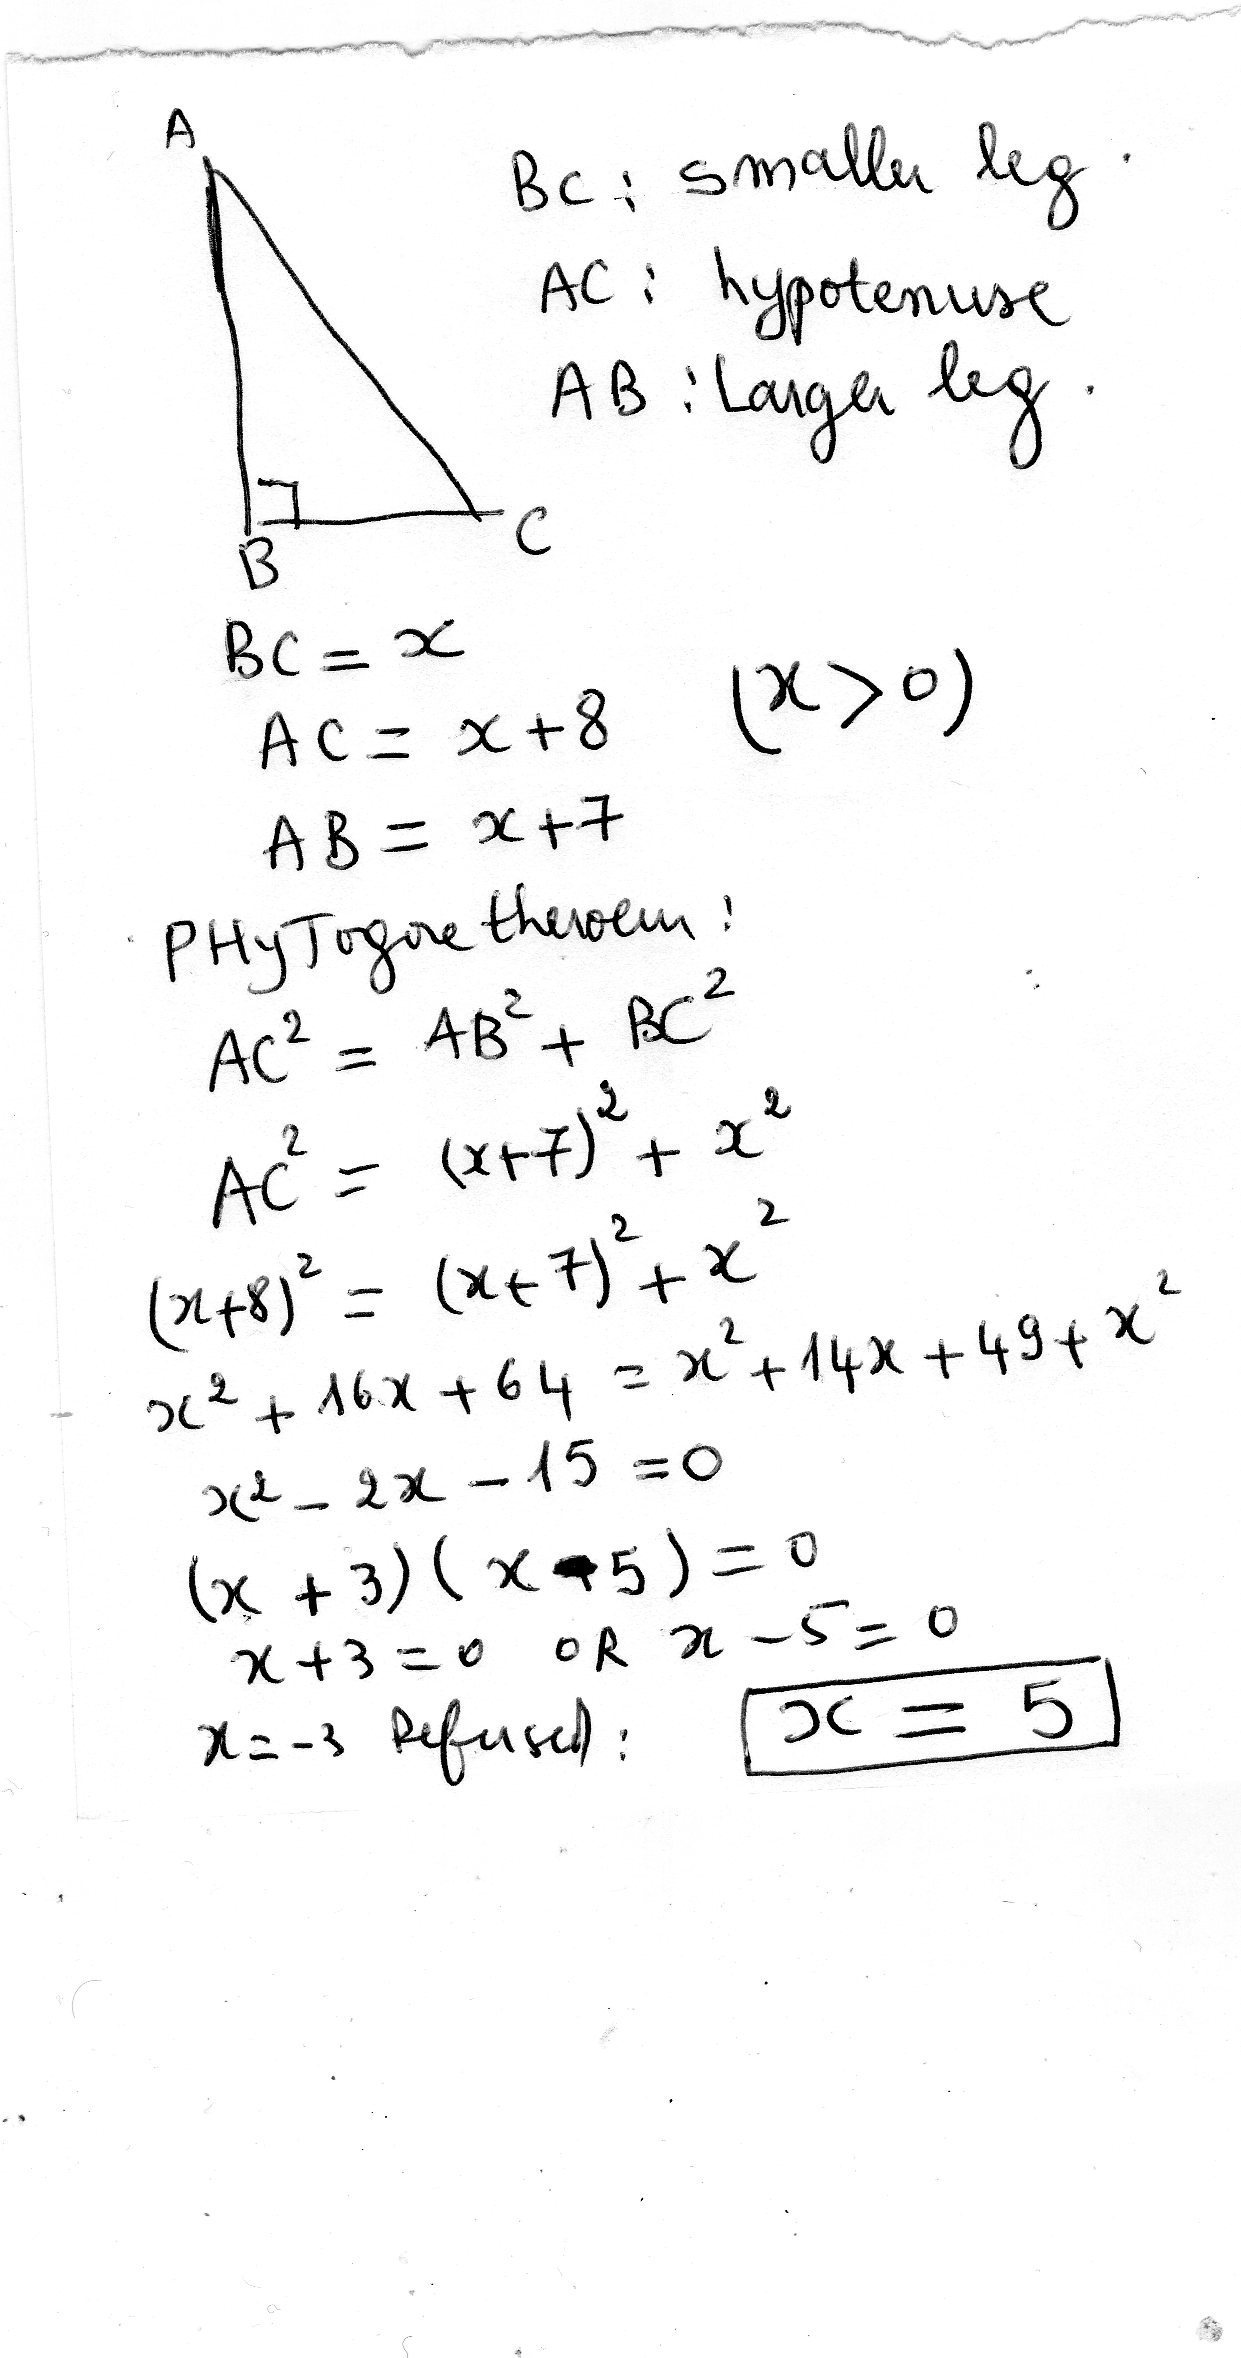 A
BC: smaller leg.
AC: hypotenuse
AB: Larger leg.
B
C
BC = x
(x>0)
AC = x+8
AB = x+7
PHyTogore theroem:
AC² = AB² + BC²
AC² = (x+7)² + x²
(x+8)² = (x+7)² + x²
x² + 16x + 64 = x² + 14x + 49 + x²
x² - 2x - 15 = 0
(x + 3)(x - 5) = 0
x + 3 = 0 OR x - 5 = 0
x = -3 Refused: x = 5